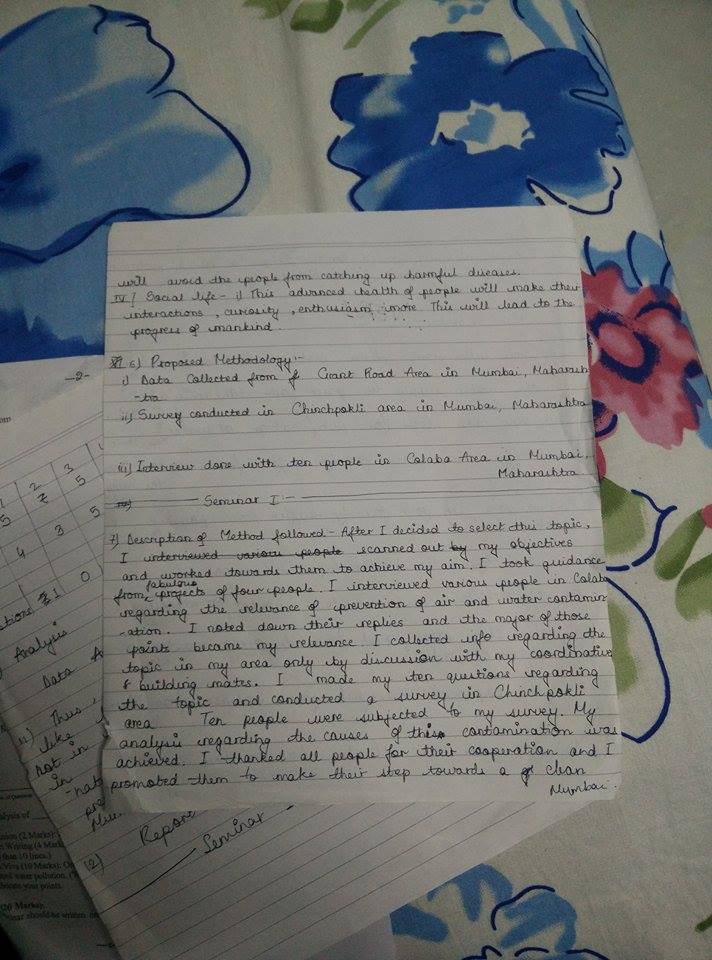 will avoid the people from catching up harmful diseases.
IV) Social life - i) This advanced health of people will make their
interactions, curiosity, enthusiasm more. This will lead to the
progress of mankind.
6) Proposed Methodology:-
i) Data Collected from Grant Road Area in Mumbai, Maharash
-tra
ii) Survey conducted in Chinchpokli area in Mumbai, Maharashtra
iii) Interview done with ten people in Colaba Area in Mumbai,
Maharashtra
Seminar I:-
7) Description of Method followed - After I decided to select this topic,
I interviewed various people scanned out by my objectives
and worked towards them to achieve my aim. I took guidance
from fabulous projects of four people. I interviewed various people in Colaba
regarding the relevance of prevention of air and water contamin
-ation. I noted down their replies and the major of those
points became my relevance. I collected info regarding the
topic in my area only by discussion with my coordinative
& building mates. I made my ten questions regarding
the topic and conducted a survey in Chinchpokli
area. Ten people were subjected to my survey. My
analysis regarding the causes of this contamination was
achieved. I thanked all people for their cooperation and I
promoted them to make their step towards a clean
Mumbai.
-2-
1 2 3 4
5 7 5
4 3 5
1 0
Analysis
Data A
11) Thus,
like
not in
in
-nat
pre
Mum
12) Report
Seminar